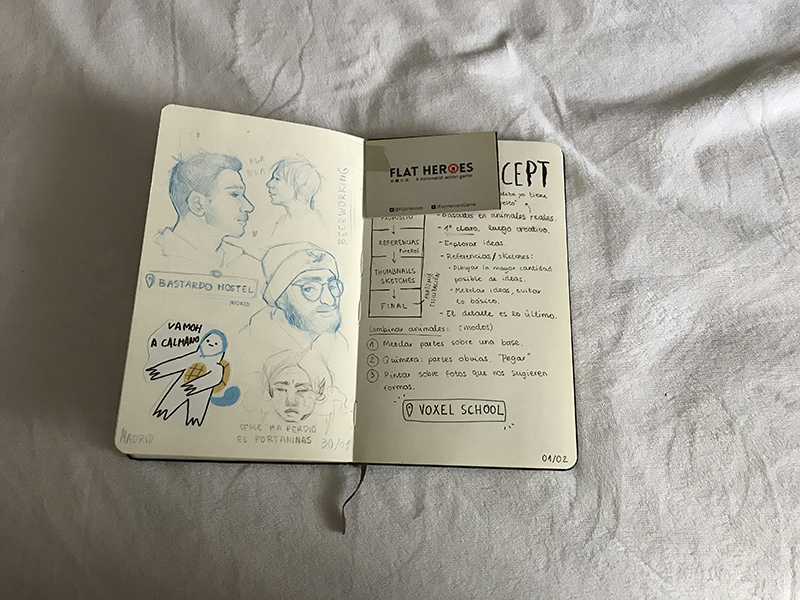 BLA
BLA
BEERWORKING
BASTARDO HOSTEL
MADRID
VAMOH
A CALMANO
SE ME HA PERDIO
EL PORTAMINAS
MADRID
30/01
FLAT HEROES
A minimalist action game
CEPT
ya tiene
PROPÓSITO
REFERENCIAS
PUREREF
THUMBNAILS
SKETCHES
FINAL
- Basados en animales reales.
- 1º claro, luego creativo.
- Explorar ideas.
- Referencias/sketches:
· Dibujar la mayor cantidad
posible de ideas.
· Mezclar ideas, evitar
lo básico.
- El detalle es lo último.
Combinar animales: (modos)
1 Mezclar partes sobre una base.
2 Quimera: partes obvias. "Pegar"
3 Pintar sobre fotos que nos sugieren
formas.
VOXEL SCHOOL
01/02